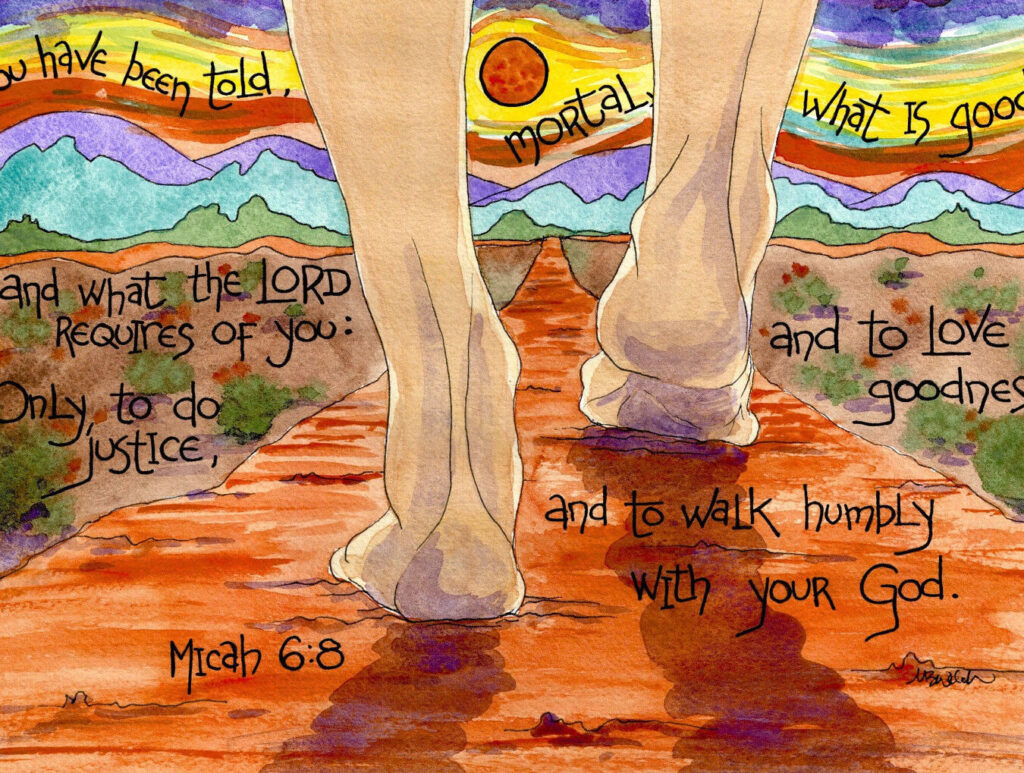 ou have been told,
mortal,
what is good
and what the LORD
REQUIRES of you:
Only, to do
justice,
and to Love
goodnes
and to walk humbly
with your God.
Micah 6:8